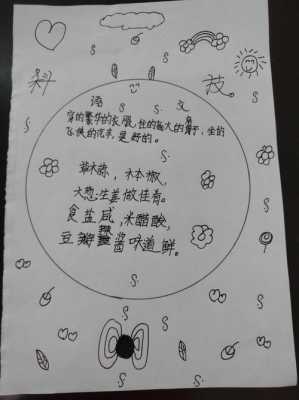 科 技
语 文
穿的繁华的衣服,住的极大的房子,坐的
飞快的汽车,是的。
草本蒜,木本椒,
大葱生姜做佳肴。
食盐咸,米醋酸,
豆瓣酱味道鲜。